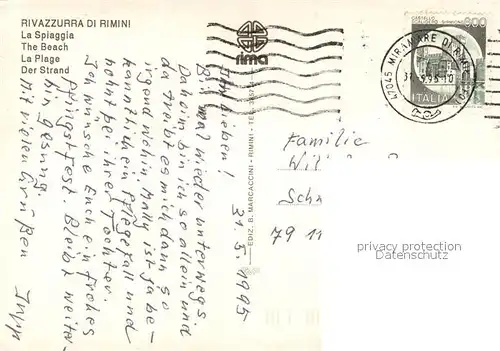 RIVAZZURRA DI RIMINI
La Spiaggia
The Beach
La Plage
Der Strand
rima
EDIZ. B. MARCACCINI - RIMINI
31.5.1995
Ihr Lieben!
Bin mal wieder unterwegs.
Daheim bin ich so allein und
da treibt es mich dann so
irgendwohin. Mally ist ja be-
kanntlich ein Pflegefall und
wohnt bei ihrer Tochter.
Ich wünsche Euch ein frohes
Pfingstfest. Bleibt weiter-
hin gesund.
Mit vielen Grüßen
CASTELLO
600
ITALIA
47045 MIRAMARE DI RIMINI
Familie
Wil
Sch
79 11
privacy protection
Datenschutz